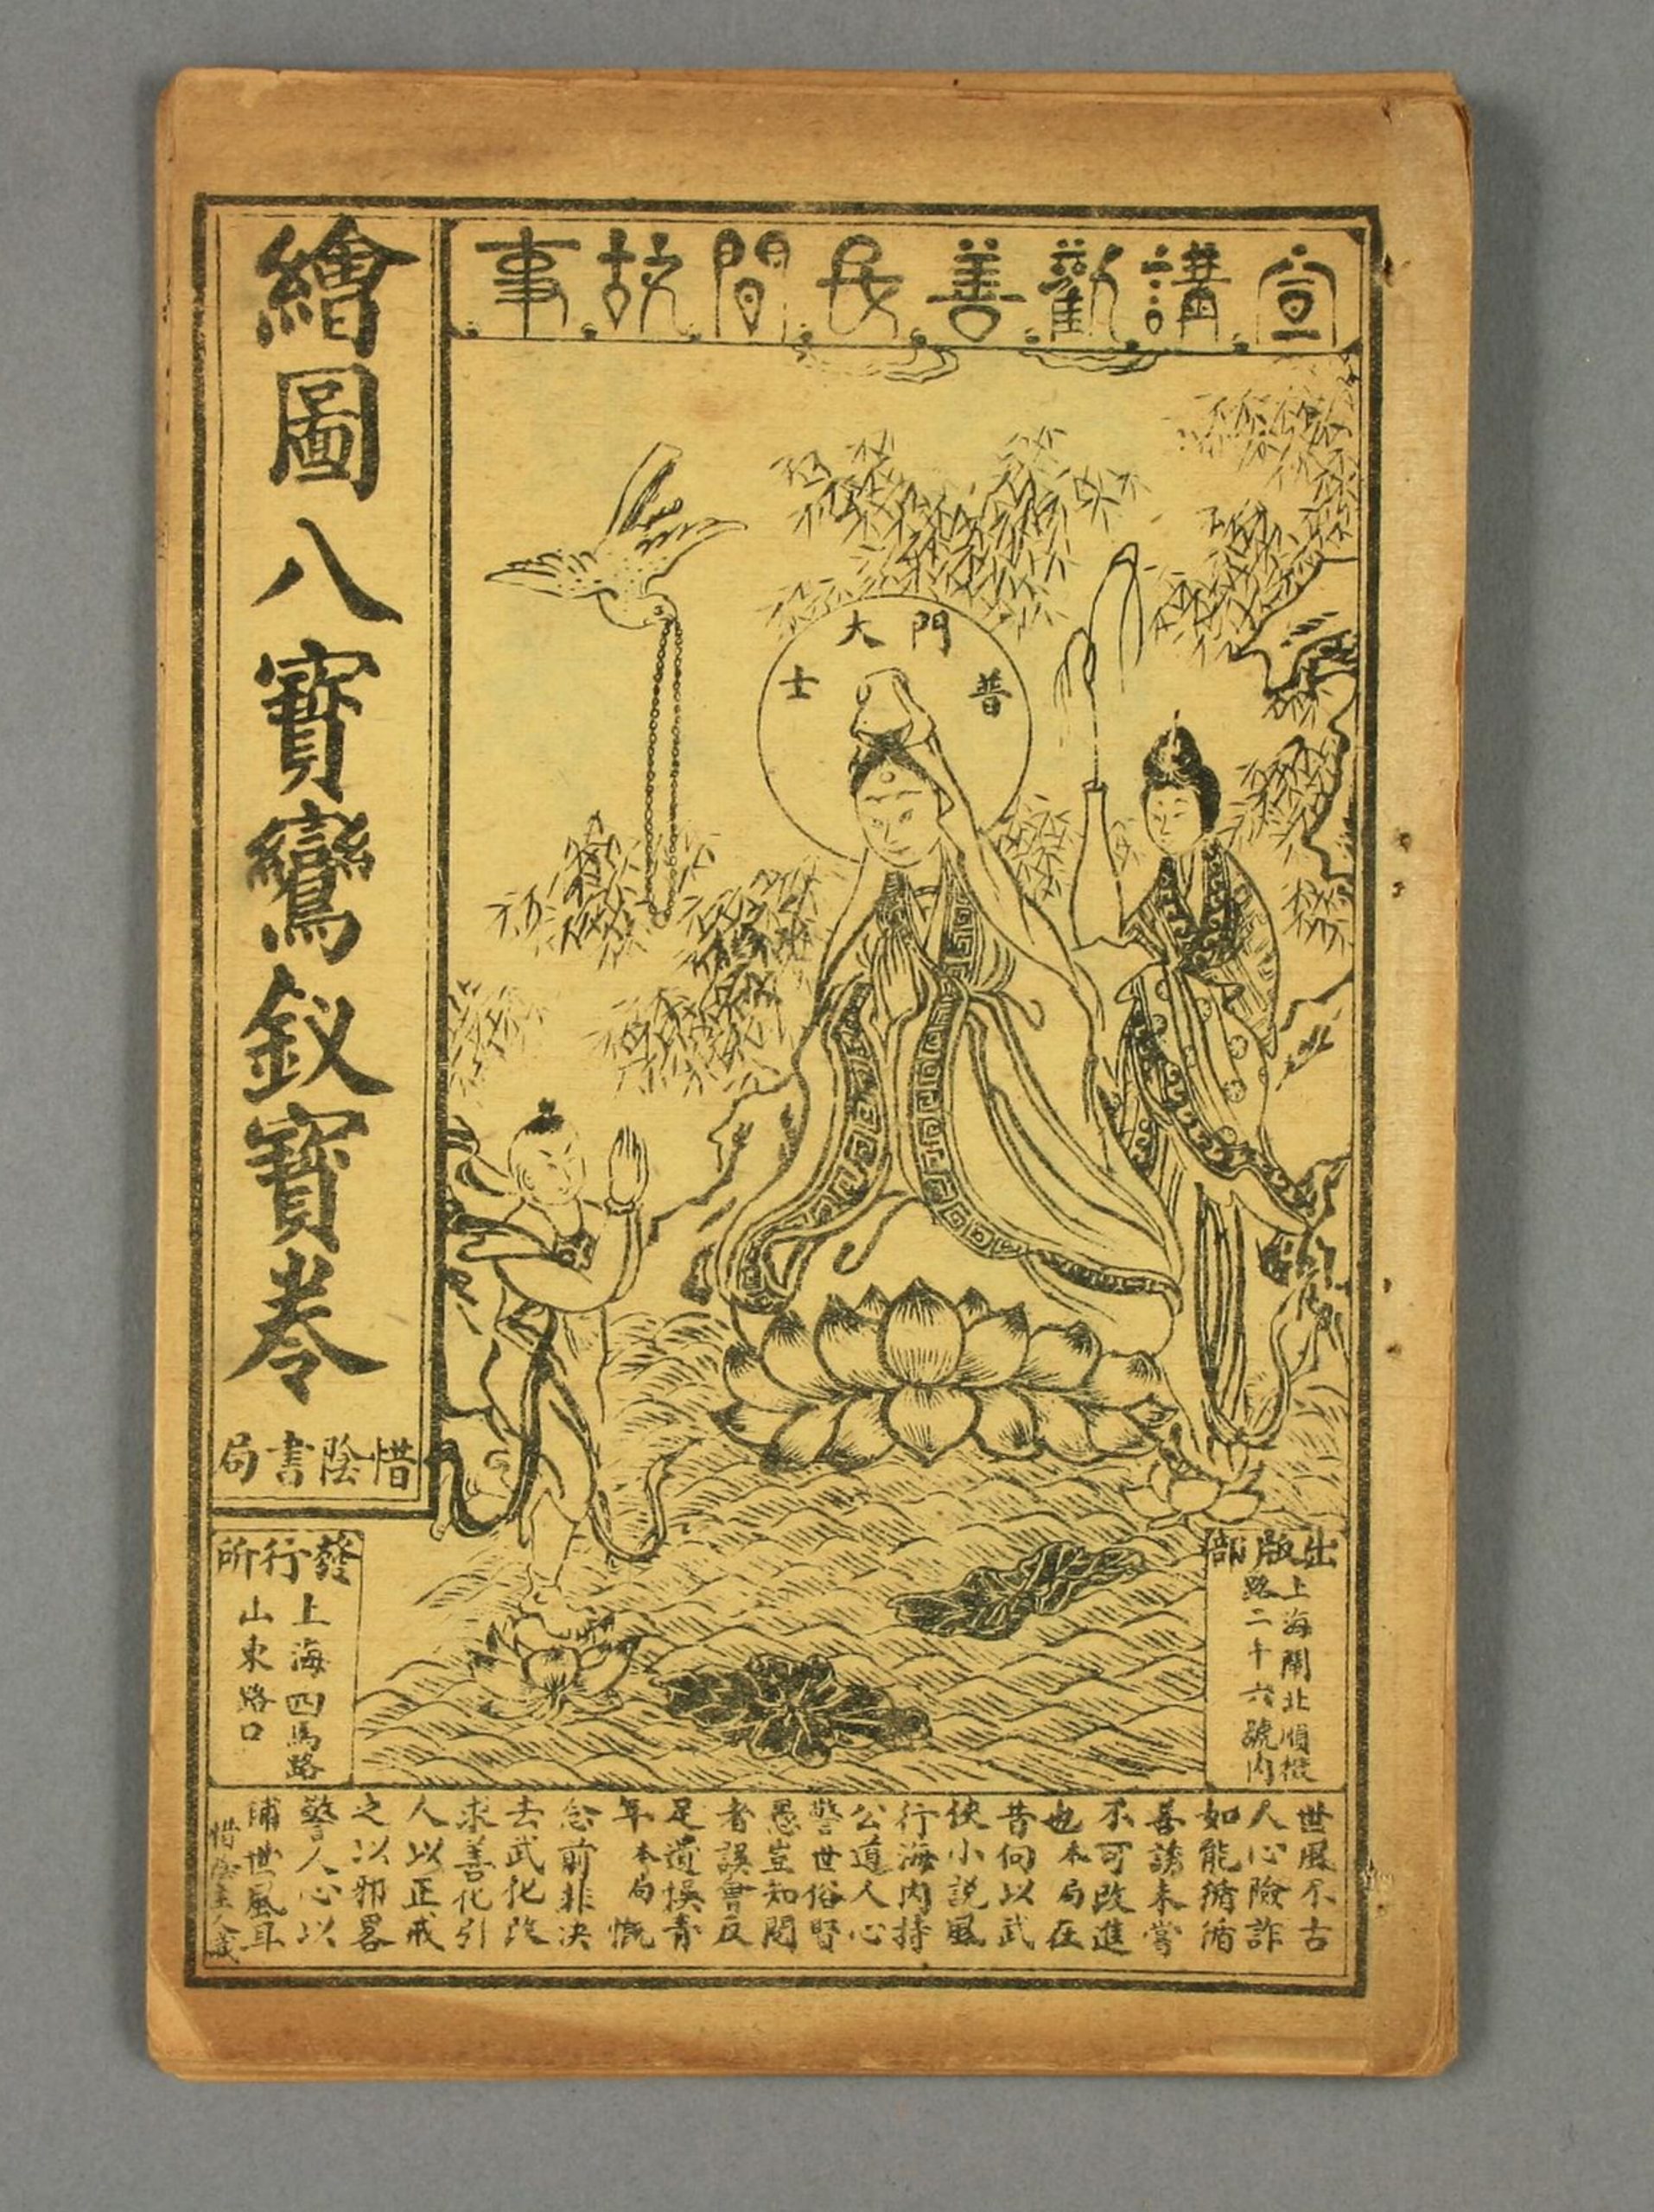 宣講勸善民間故事
繪圖八寶鸞釵寶卷
惜陰書局
普門大士
出版部
上海閘北順徵
路二十六號內
發行所
上海四馬路
山東路口
世風不古
人心險詐
如能循循
善誘未嘗
不可改進
也本局在
昔向以武
俠小說風
行海內持
公道人心
警世俗賢
愚豈知閱
者誤會反
足遺悞青
年本局慨
念前非决
去武化改
求善化引
人以正戒
之以邪畧
警人心以
補世風耳
惜陰主人識